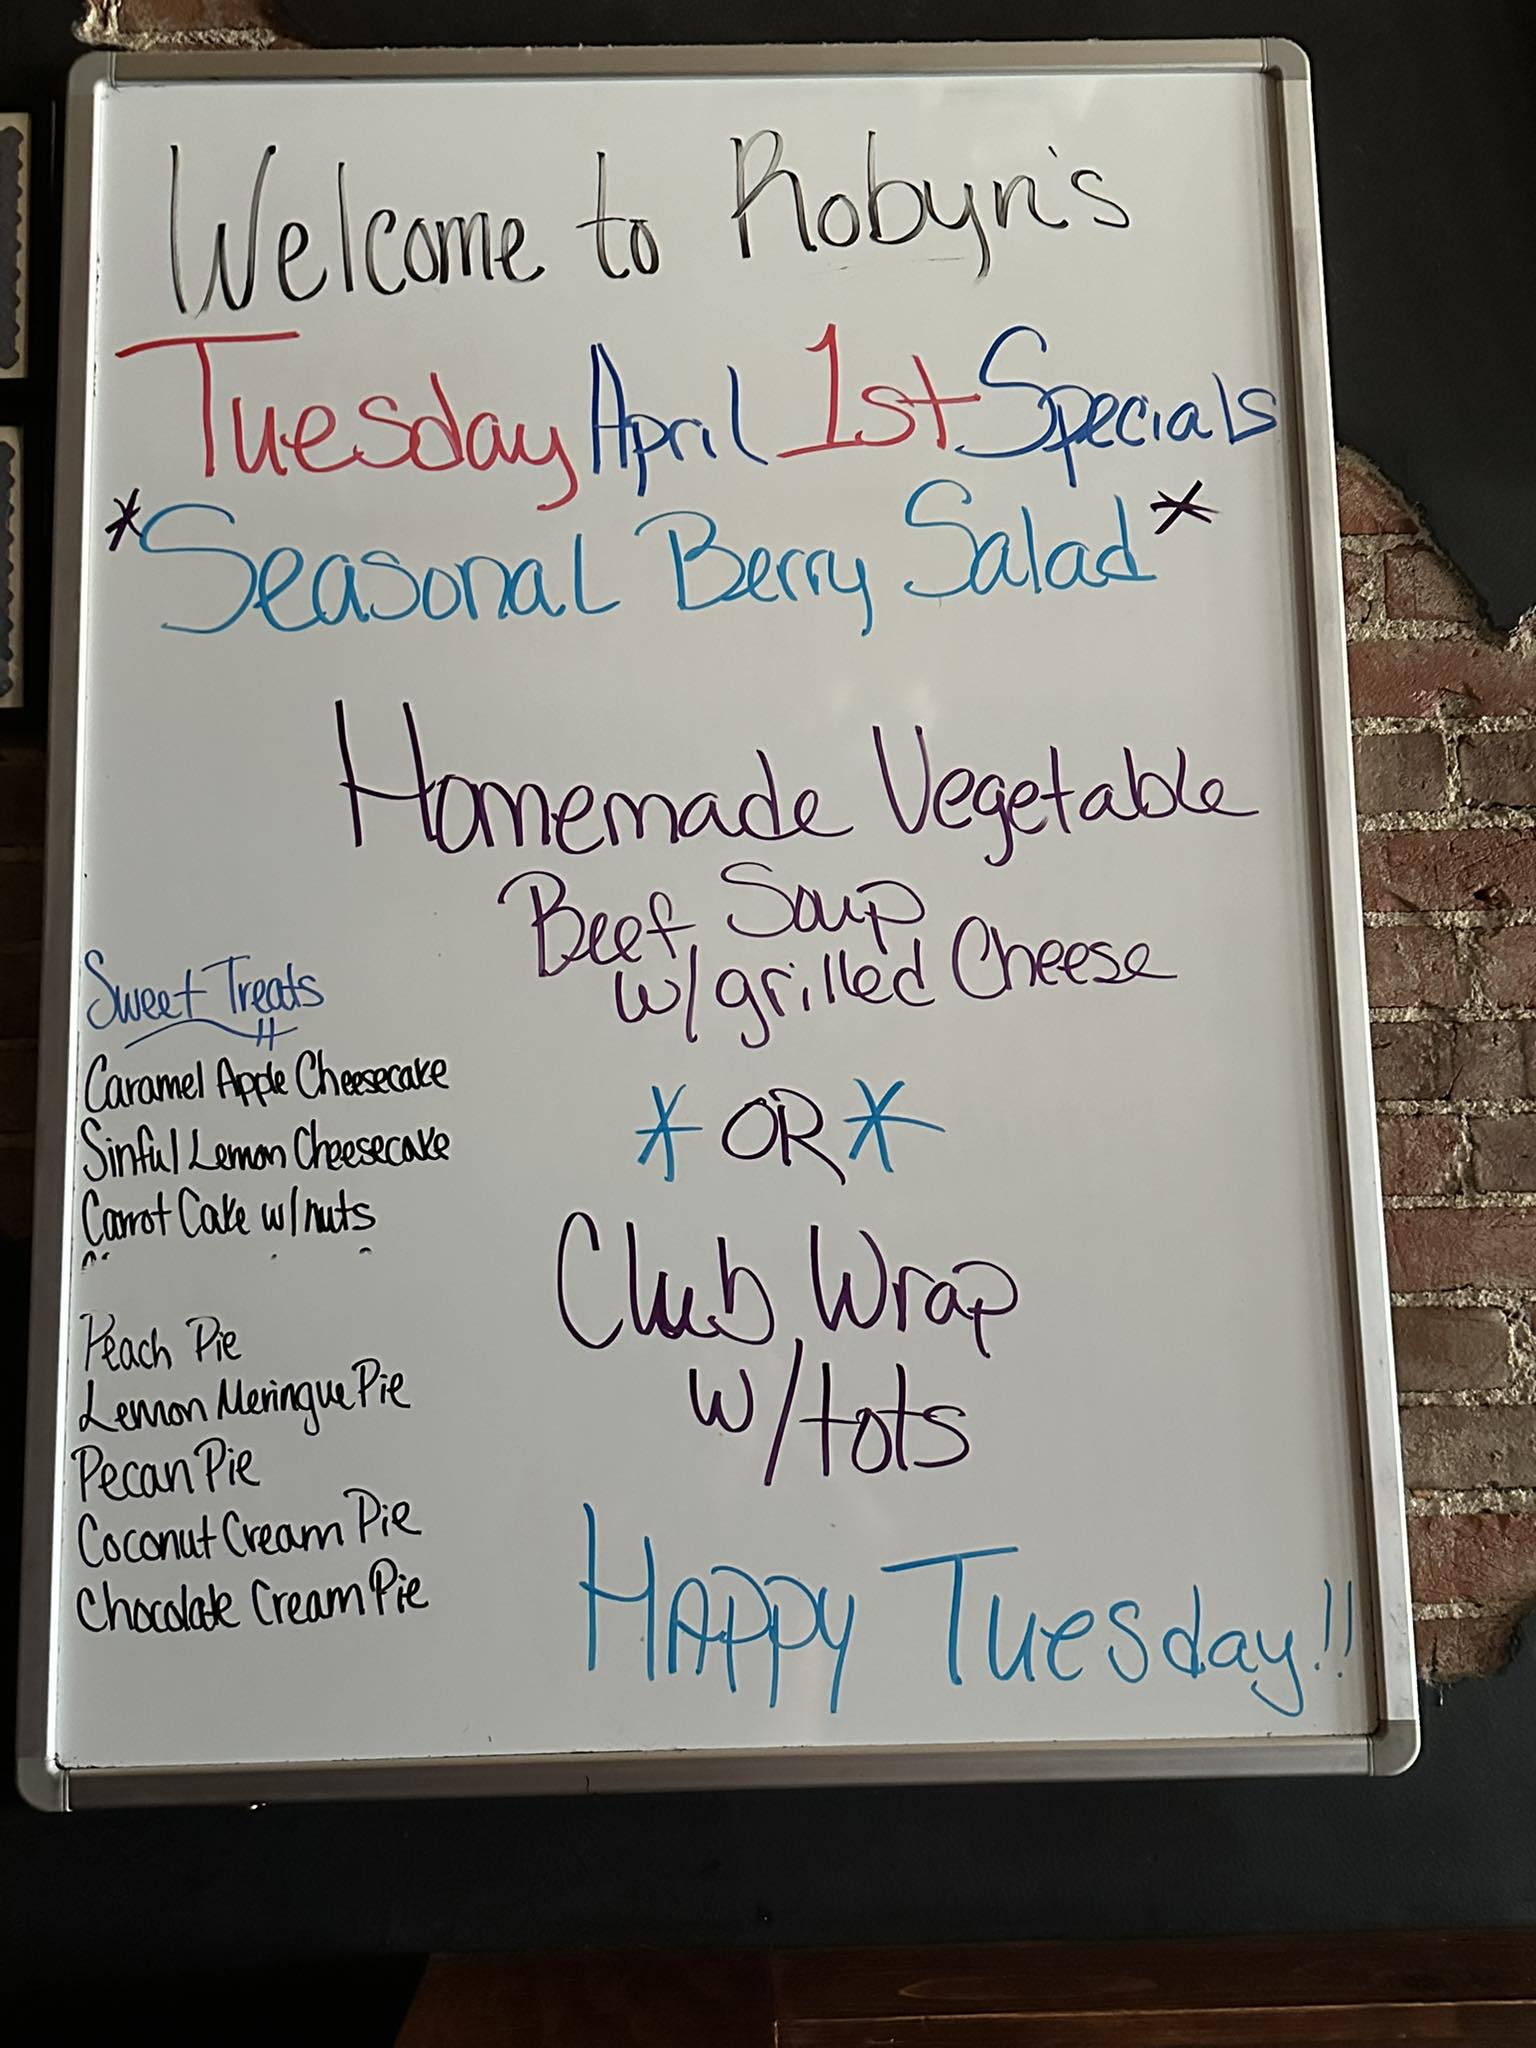 Welcome to Robyn's
Tuesday April 1st Specials
*Seasonal Berry Salad*
Homemade Vegetable
Beef Soup
w/grilled Cheese
*OR*
Club Wrap
w/tots
HAPPY Tuesday!!
Sweet Treats
Caramel Apple Cheesecake
Sinful Lemon Cheesecake
Carrot Cake w/nuts
Peach Pie
Lemon Meringue Pie
Pecan Pie
Coconut Cream Pie
Chocolate Cream Pie